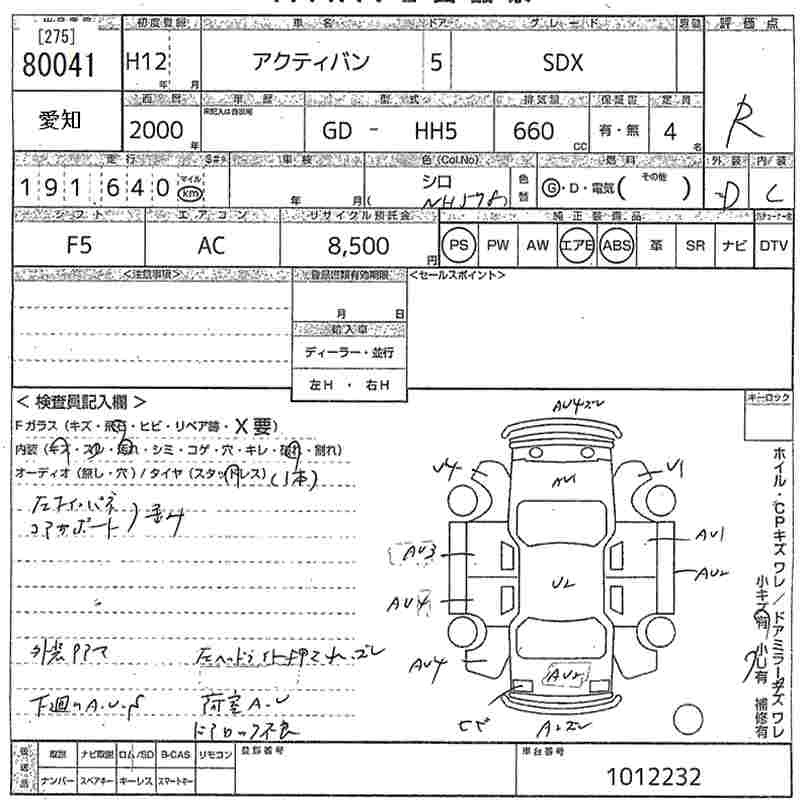 [275]
80041
初度登録 車名 ドア グレード 評価点
H12 年 月 アクティバン 5 SDX
R
愛知
西暦 車歴 型式 排気量 保証書 定員
2000 年 GD - HH5 660 CC 有・無 4 名
走行 車検 色(Col.No) 燃料 外装 内装
191640 マイル km 年 月( シロ 色替 G・D・電気( その他 ) D C
シフト エアコン リサイクル預託金 純正装備品
F5 AC 8,500 円 PS PW AW エアB ABS 革 SR ナビ DTV
<注意事項> 登録書類有効期限 <セールスポイント>
月 日
輸入車
ディーラー・並行
左H ・ 右H
< 検査員記入欄 > キーロック
Fガラス(キズ・飛石・ヒビ・リペア跡・X要)
内装(キズ・スレ・汚れ・シミ・コゲ・穴・キレ・破れ・割れ)
オーディオ(無し・穴)/タイヤ(スタッドレス)(1本)
コアサポート
AU1
V4
V1
AU3
AU1
U2
AU2
AU4
AU4
AU2
外装
下廻りA.U.
荷室A.U
ドアロック不良
ホイル・CPキズ ワレ/ドアミラーキズ ワレ
小キズ有 小U有 補修有
後送品 取説 ナビ取説 ロム/SD B-CAS リモコン 登録番号 車台番号
ナンバー スペアキー キーレス スマートキー 1012232